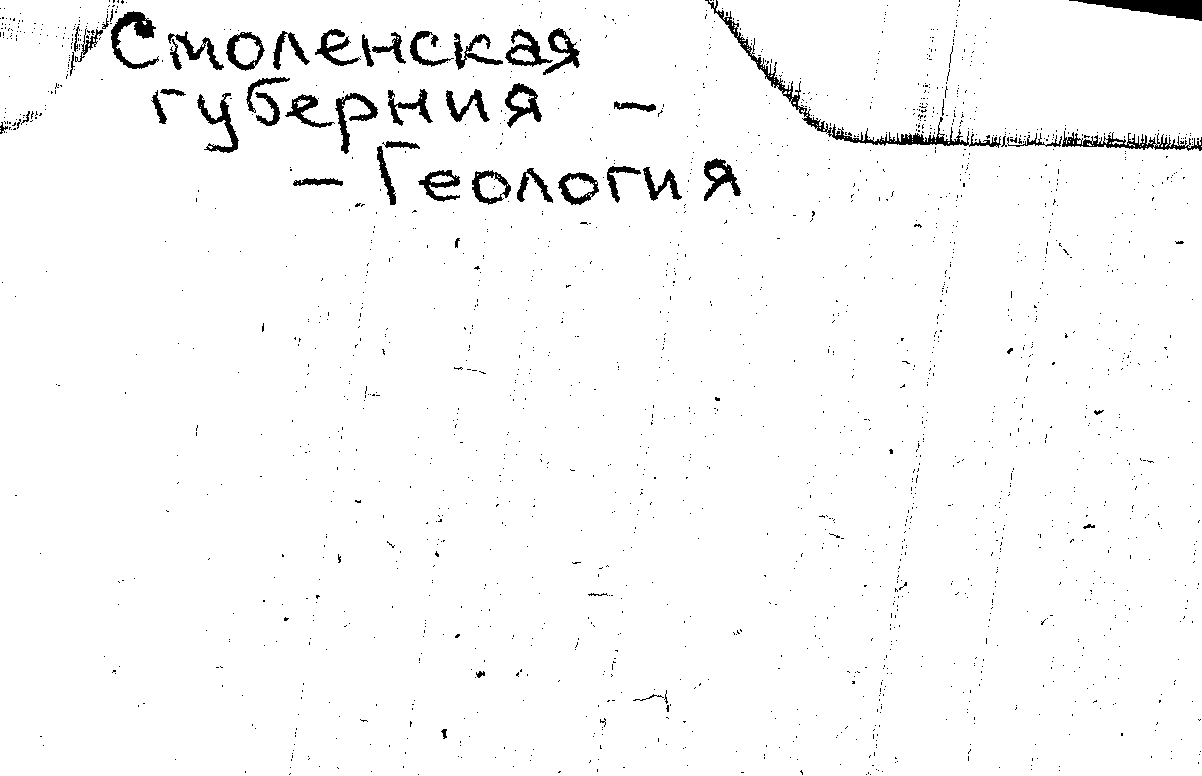 Смоленская
губерния –
– Геология